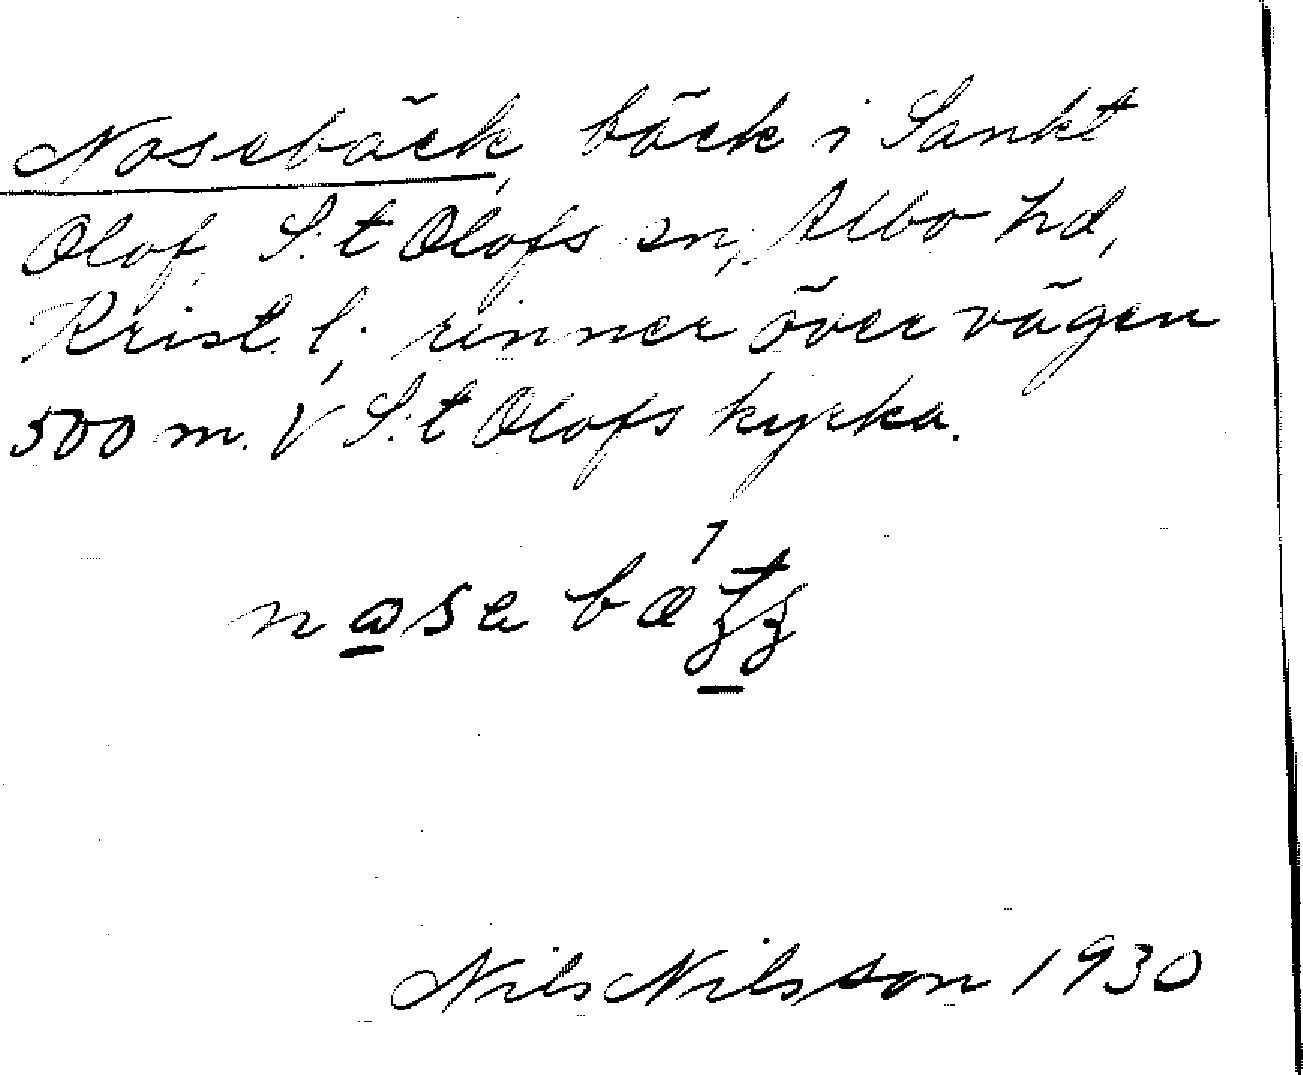 Nosebäck, bäck i Sankt
Olof, S:t Olofs sn, Albo hd,
Krist. l; rinner över vägen
500 m. V S:t Olofs kyrka.
Nils Nilsson 1930